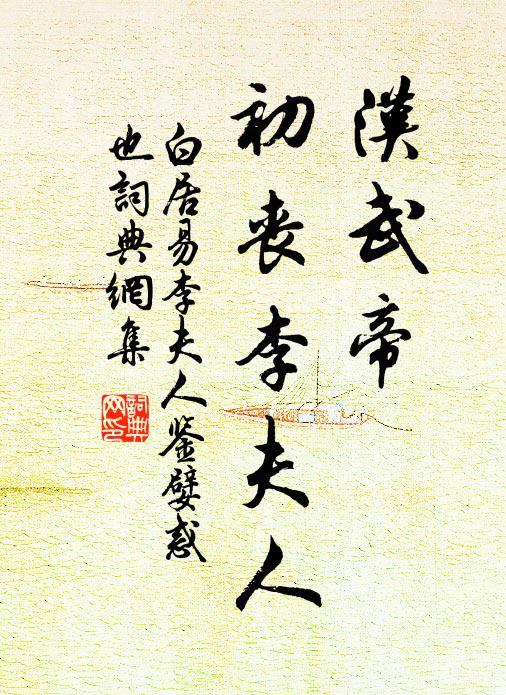 漢武帝
初喪李夫人
白居易李夫人鉴嬖惑
也詞典網集
詞典
网印